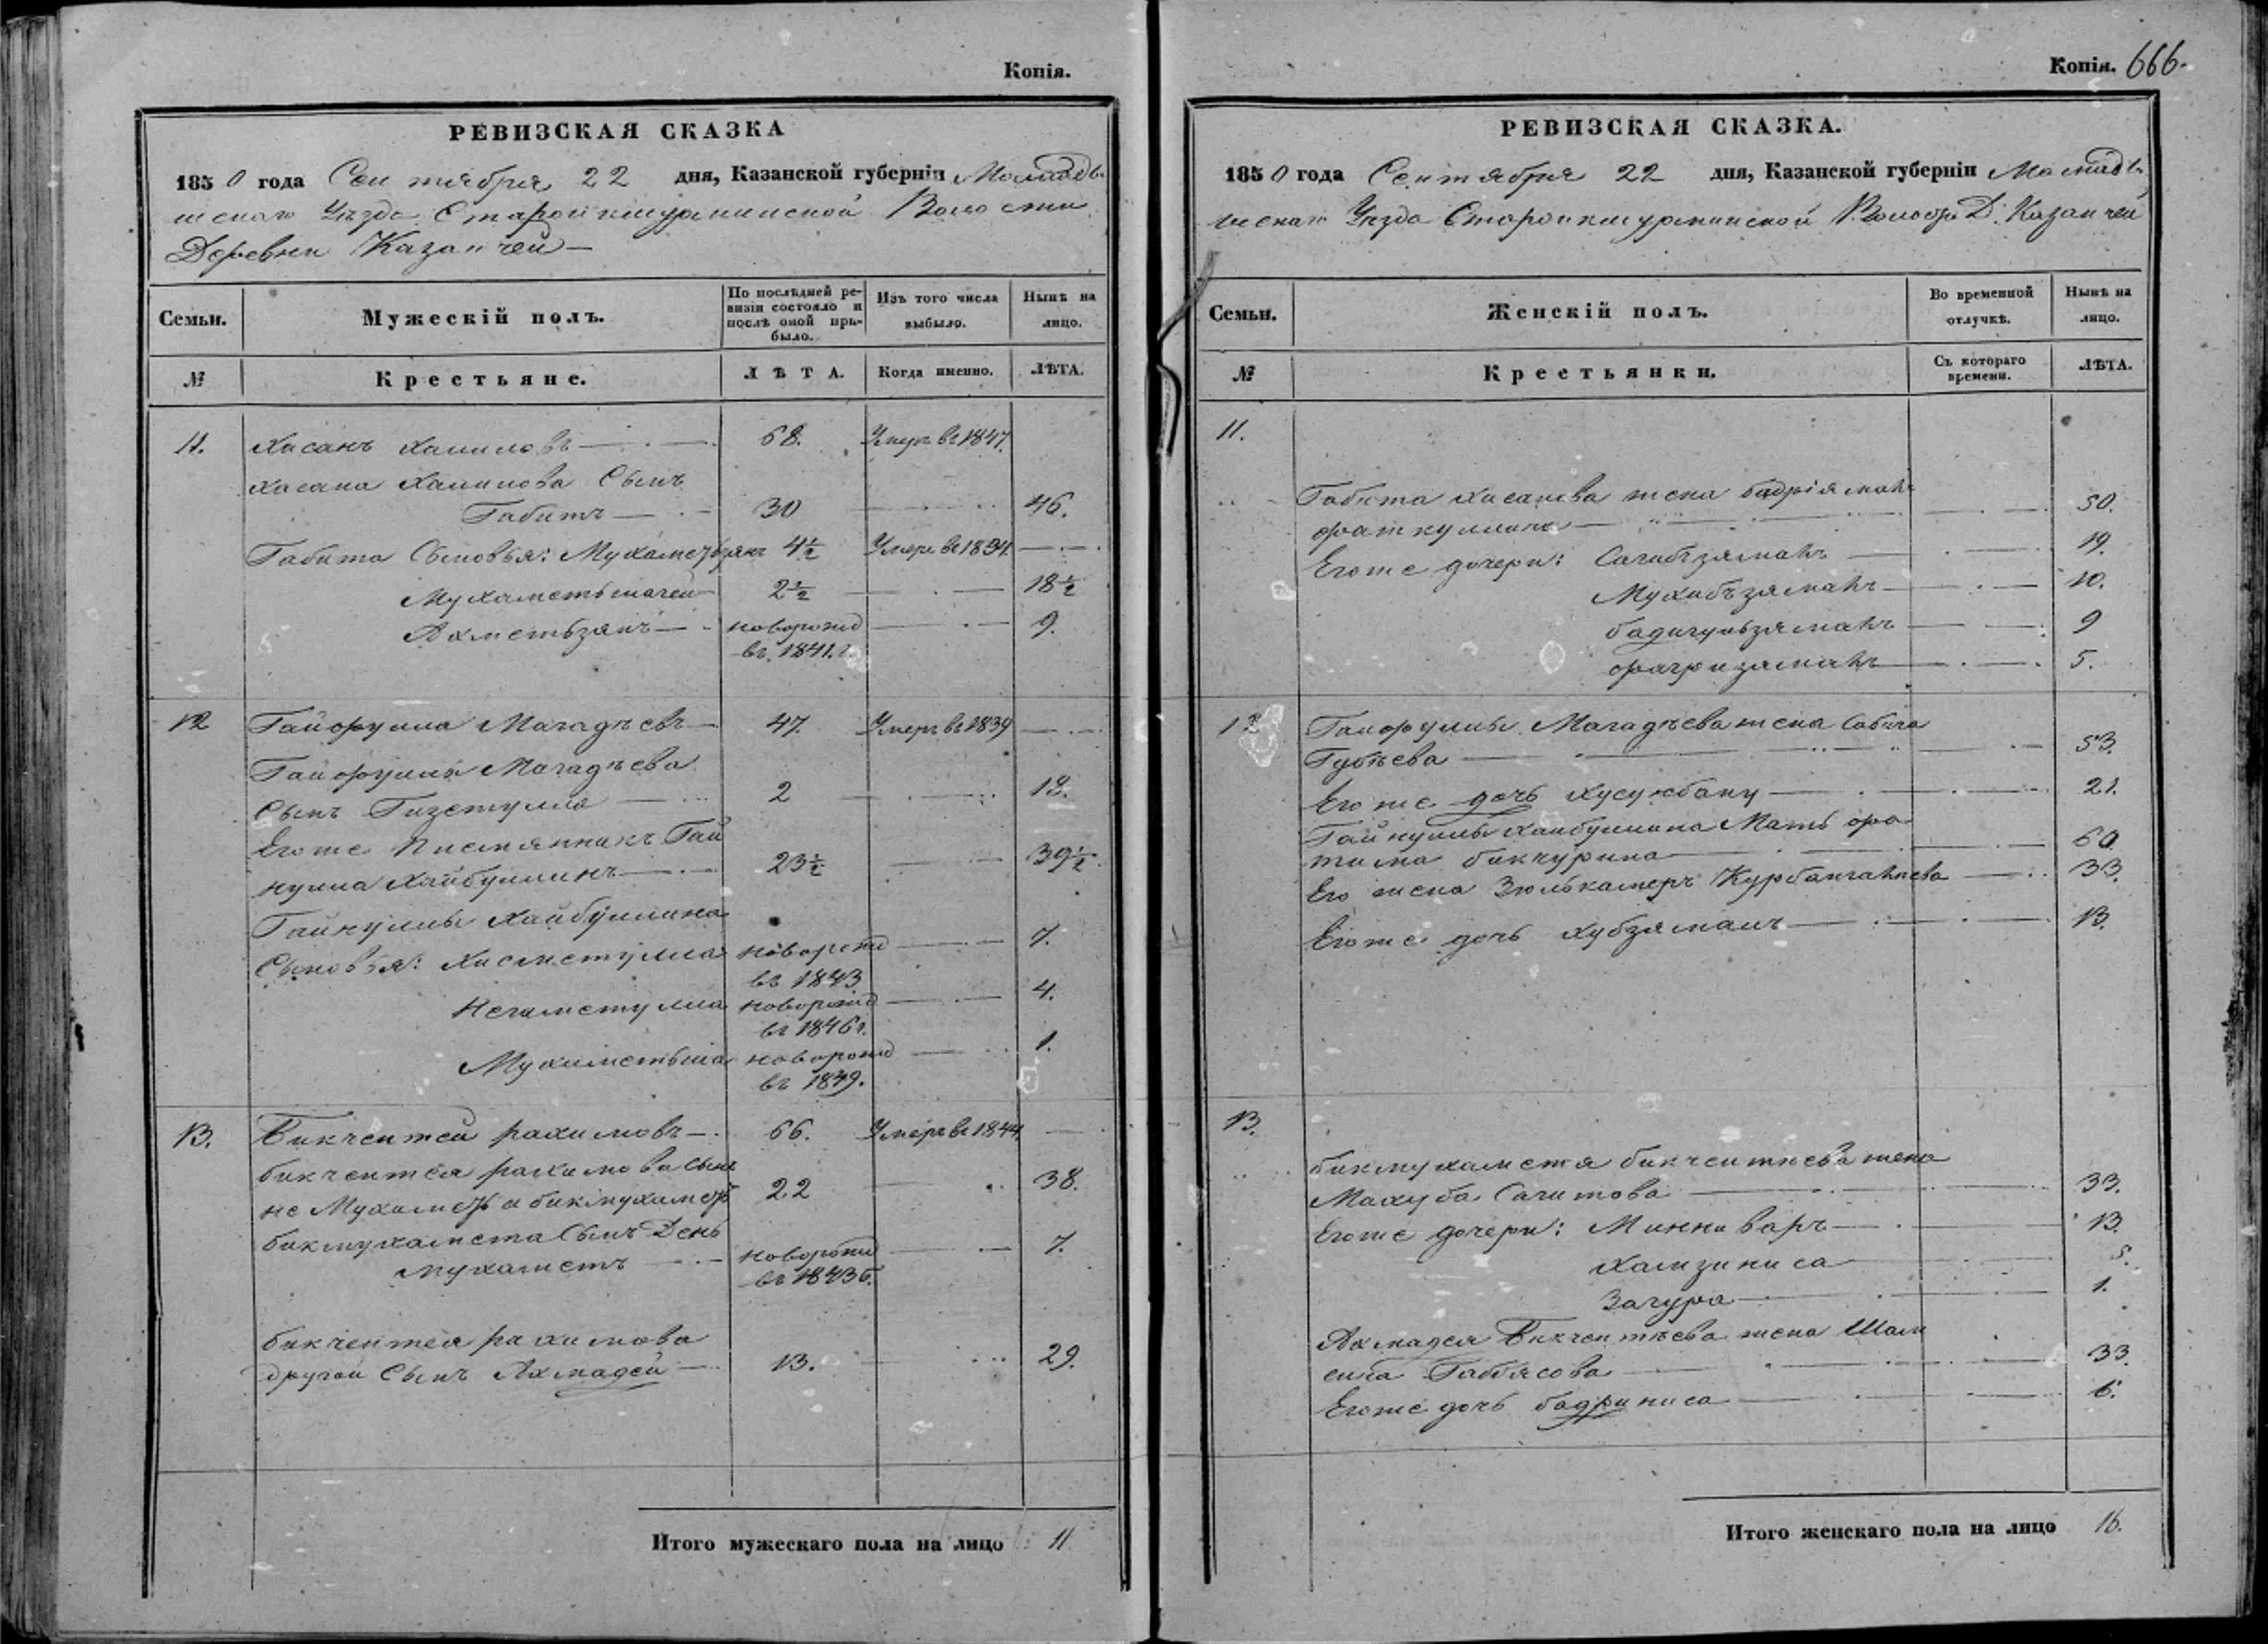 Копія.
РЕВИЗСКАЯ СКАЗКА
1850 года Сентября 22 дня, Казанской губерніи Мамады-
шскаго Уѣзда Старокишурминской Волости
Деревни Казанчей
Семьи.
Мужескій полъ.
По послѣдней ре-
визіи состояло и
послѣ оной при-
было.
Изъ того числа
выбыло.
Нынѣ на
лицо.
№
Крестьяне.
ЛѢТА.
Когда именно.
ЛѢТА.
11. Хасанъ Халиловъ 68. Умеръ въ 1847.
Хасана Халилова Сынъ
Габитъ 30 46.
Габита Сыновья: Мухаметзянъ 4½ Умеръ въ 1834.
Мухаметьшагей 2½ 18½
Ахметьзянъ новорожд 9.
въ 1841.г.
12 Гайфулла Магадѣевъ 47. Умеръ въ 1839
Гайфуллы Магадѣева
Сынъ Гизетулла 2 18.
Егоже Писмянникъ Гай
нулла Хайбуллинъ 23½ 39½
Гайнуллы Хайбуллина
Сыновья: Хисметулла новорожд 7.
въ 1843
Негаметулла новорожд 4.
въ 1846г.
Мухаметьша новорожд 1.
въ 1849.
13. Бикчентей рахимовъ 66. Умеръ въ 1844.
бикчентея рахимова сынъ
не Мухаметъ а бикмухаметъ 22 38.
бикмухамета Сынъ День
мухаметъ новорожд 7.
въ 1843г.
бикчентея рахимова
другой Сынъ Ахмадей 13. 29.
Итого мужескаго пола на лицо 11
Копія. 666.
РЕВИЗСКАЯ СКАЗКА.
1850 года Сентября 22 дня, Казанской губерніи Мамады-
шскаго Уѣзда Старокишурминской Волости Д. Казанчей
Семьи.
Женскій полъ.
Во временной
отлучкѣ.
Нынѣ на
лицо.
№
Крестьянки.
Съ котораго
времени.
ЛѢТА.
11.
Габита Хасанова жена бадріямалъ
фаткуллина 50.
Егоже дочери: Сагибзямалъ 19.
Мухибъзямалъ 10.
бадигульзямалъ 9
фахризямалъ 5.
12 Гайфуллы Магадѣева жена Сабига
Губѣева 53.
Егоже дочь Хусужбану 21.
Гайнуллы Хайбуллина Мать фа
тима бикчурина 60
Его жена Зюлькамеръ Курбангалиева 33.
Егоже дочь Хубзямалъ 13.
13.
бикмухаметя бикчентѣева жена
Махуба Сагитова 33.
Егоже дочери: Миннаваръ 13.
Хамзиниса 5.
Загура 1.
Ахмадея Бикчентѣева жена Шам
сиба Габбясова 33.
Егоже дочь бадриниса 6.
Итого женскаго пола на лицо 16.